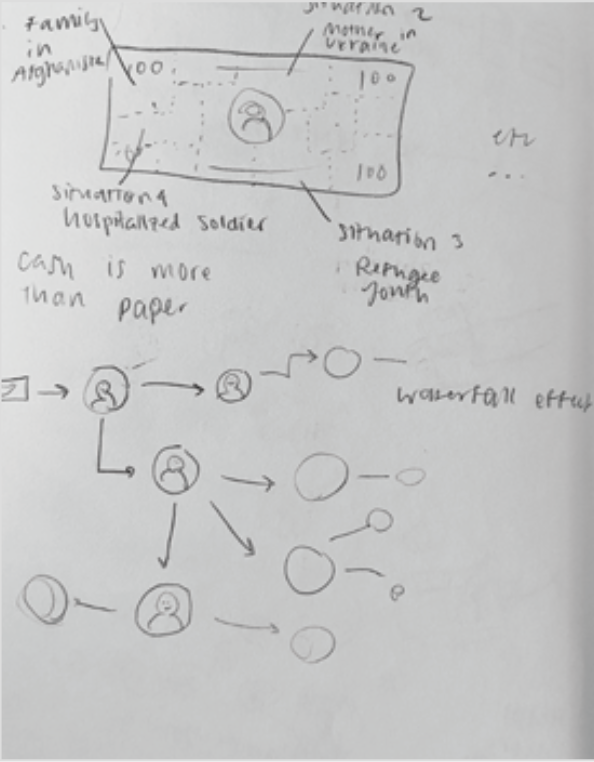 Family
in
Afghanistan
Situation 2
Mother in
Ukraine
100
100
100
etc
...
Situation 4
hospitalized soldier
Situation 3
Refugee
Youth
cash is more
than paper
waterfall effect